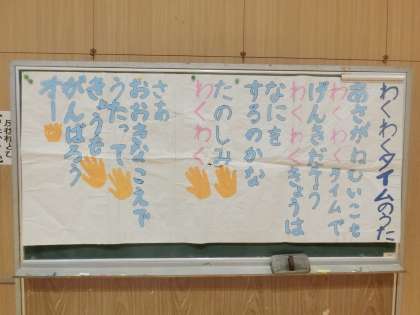 わくわくタイムのうた
あさがねむいこも
わくわくタイムで
げんきだそう
わくわくきょうは
なにを
するのかな
たのしみ
わくわく
さあ
おおきなこえで
うたって
きょうも
がんばろう
オー